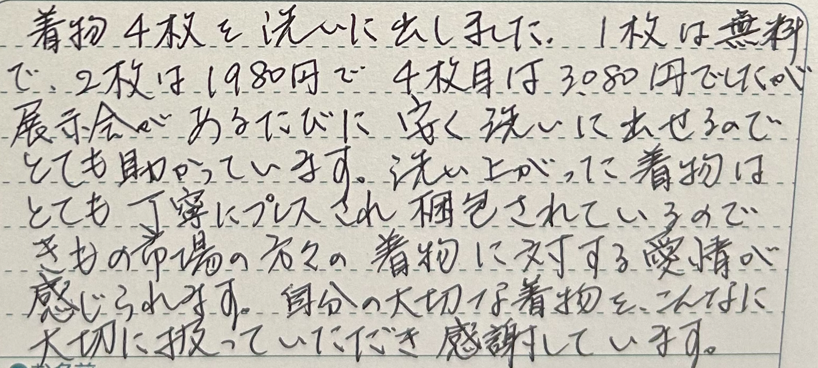 着物4枚を洗いに出しました。1枚は無料
で、2枚は1980円で4枚目は3,080円でしたが
展示会があるたびに安く洗いに出せるので
とても助かっています。洗い上がった着物は
とても丁寧にプレスされ梱包されているので
きもの市場の方々の着物に対する愛情が
感じられます。自分の大切な着物を、こんなに
大切に扱っていただき感謝しています。